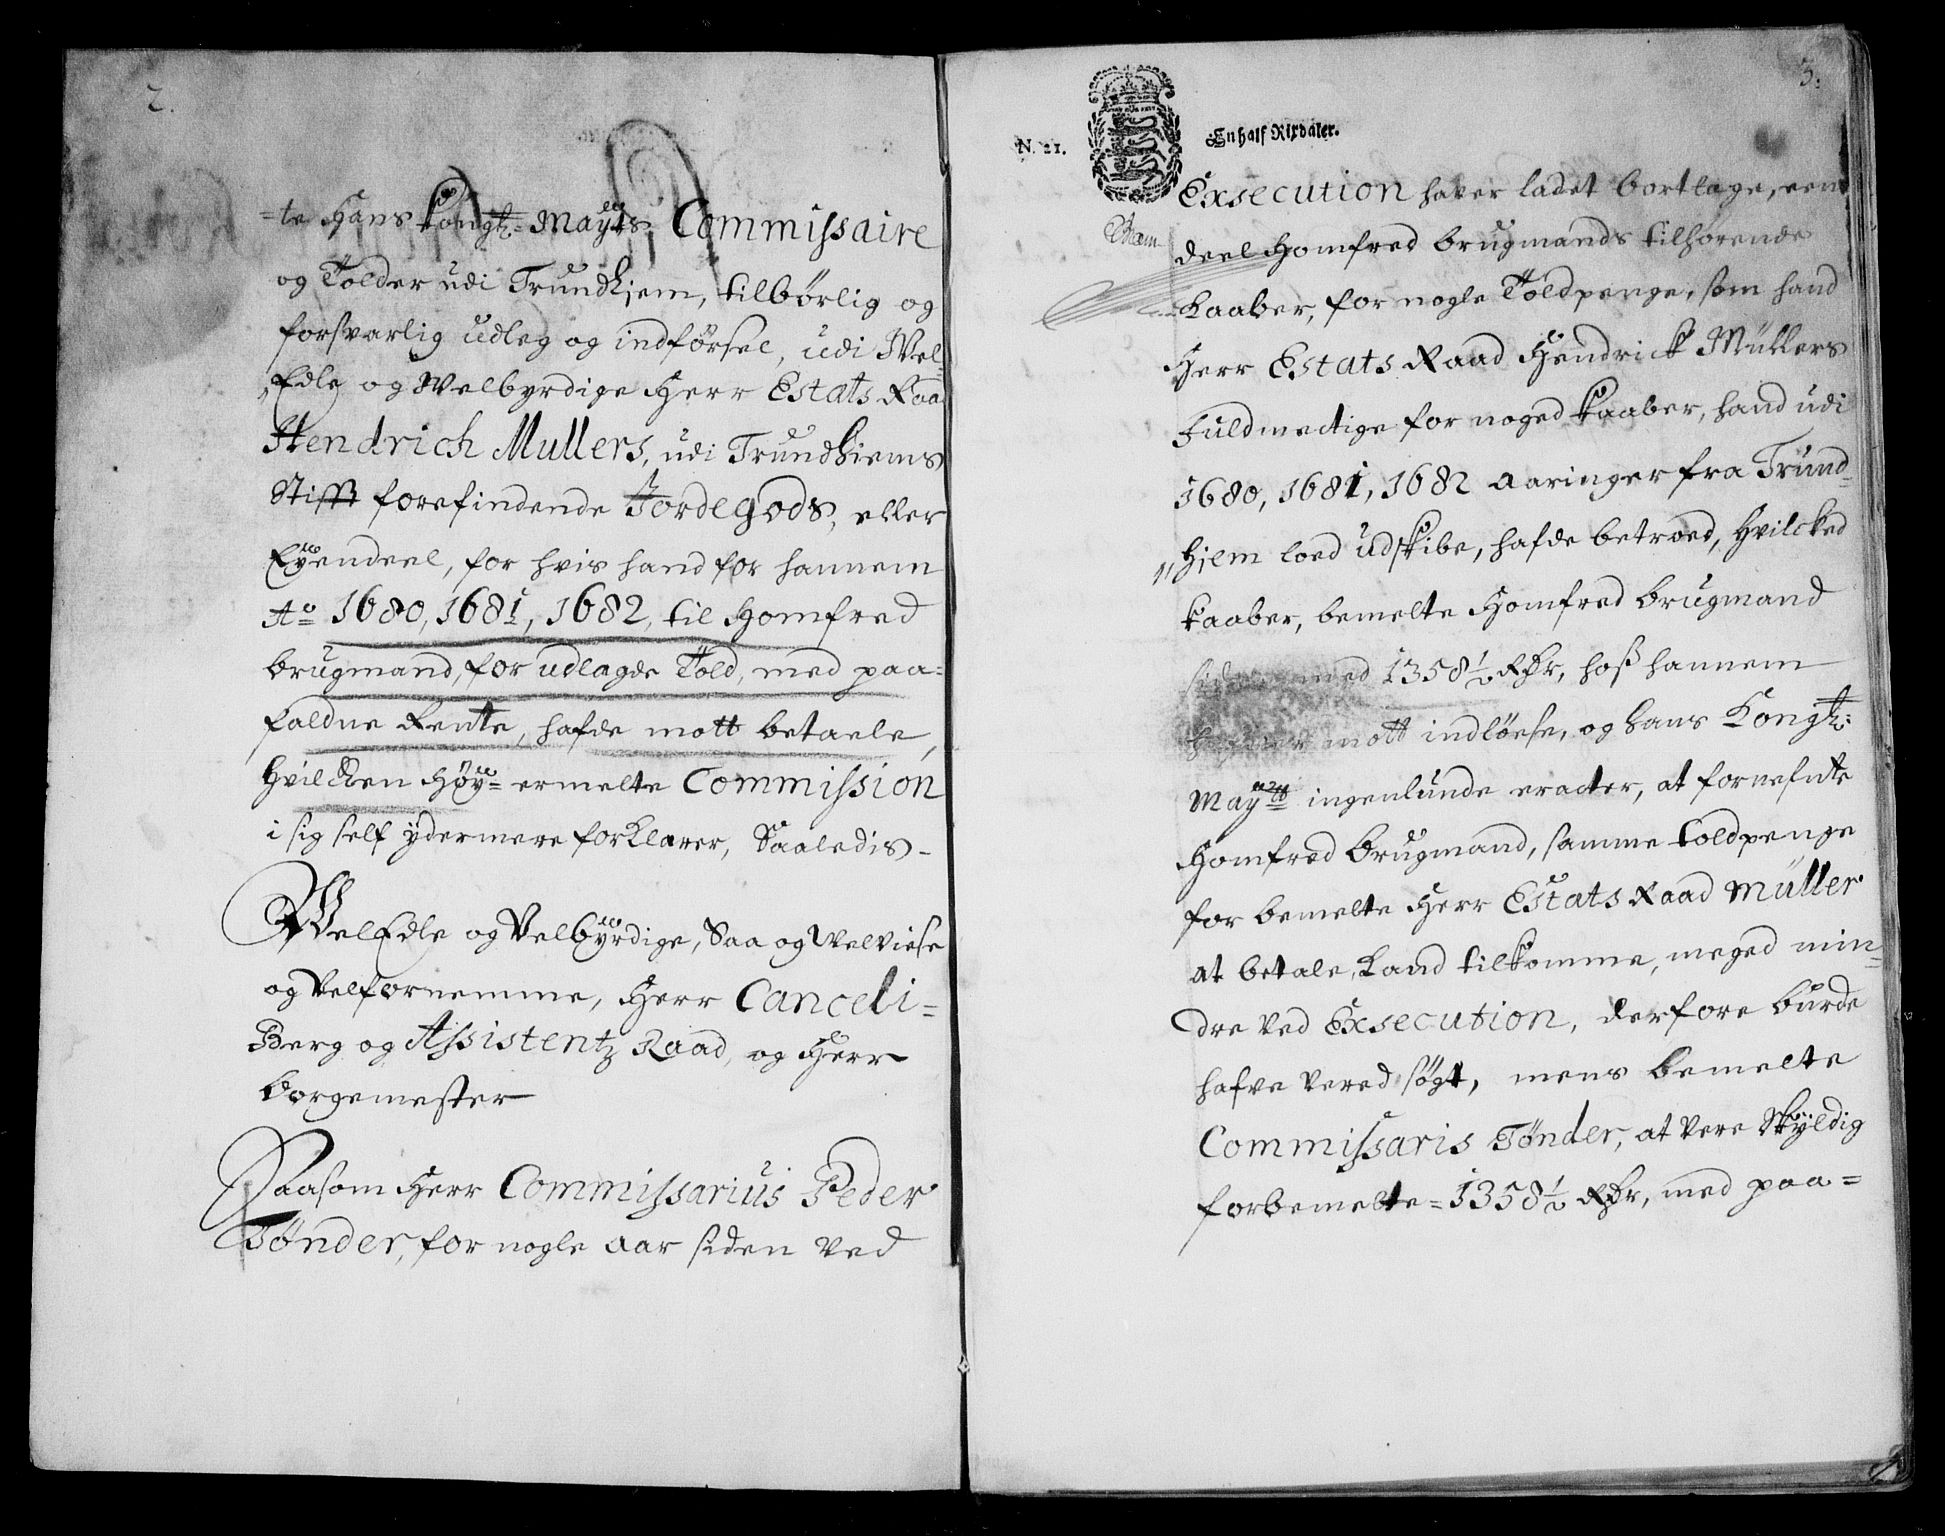 2.
=te Hans Kongh: Mayts Commissaire
og Tolder udi Trundhjem, tilbørlig og
forsvarlig udleg og indførsel, udi Wel-
Edle og Welbyrdige Herr Estats Raad
Hendrich Mullers, udi Trundhiems
Stifft forefindende Jordegods, eller
Eyendeel, for hvis hand for hannem
Ao 1680, 1681, 1682, til Homfred
Brugmand, for udlagde Told, med paa=
faldne Rente, hafde mott betaele,
Hvilcken Høy= ermelte Commission
i sig self ydermere forklarer, Saaledis-
WelEdle og Velbyrdige, Saa og Welviese
og Velfornemme, Herr Canceli=
Berg og Assistentz Raad, og Herr
Borgemester
Saasom Herr Commissarius Peder
Tønder, for nogle aar siden ved
3.
N. 21. En half Rixdaler.
Exsecution haver ladet borttage, een
deel Homfred Brugmands tilhørende
Kaaber, for nogle Toldpenge, som hand
Herr Estats Raad Hendrick Müllers
Fuldmectige for noged Kaaber, hand udi
1680, 1681, 1682 Aaringer fra Trund-
hjem loed udskibe, hafde betroed, Hvilcked
Kaaber, bemelte Homfred Brugmand
med 1358½ Rdr, hoß hannem
mott indløese, og hans Kongh:
Maytt ingenlunde eracter, at fornefnte
Homfred Brugmand, samme toldpenge
for bemelte Herr Estats Raad Müller
at betale, Kand tilkomme, meged min-
dre ved Exsecution, derfore burde
hafve vered søgt, mens bemelte
Commissaris Tønder, at vere Skyldig
forbemelte= 1358½ Rdr, med paa=